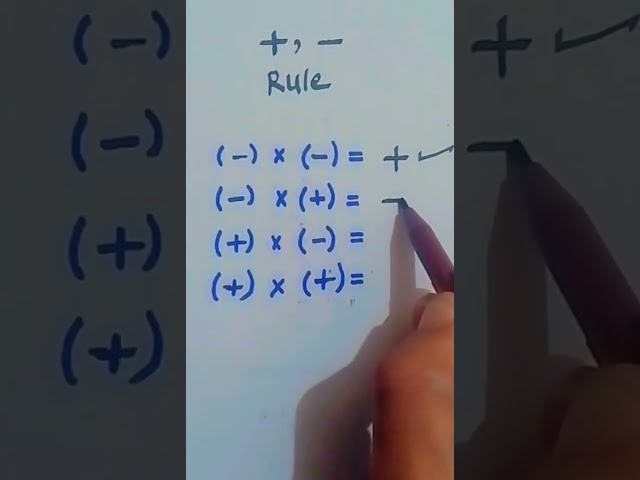 +, -
Rule
(-) × (-) = + ✓
(-) × (+) = -
(+) × (-) =
(+) × (+) =